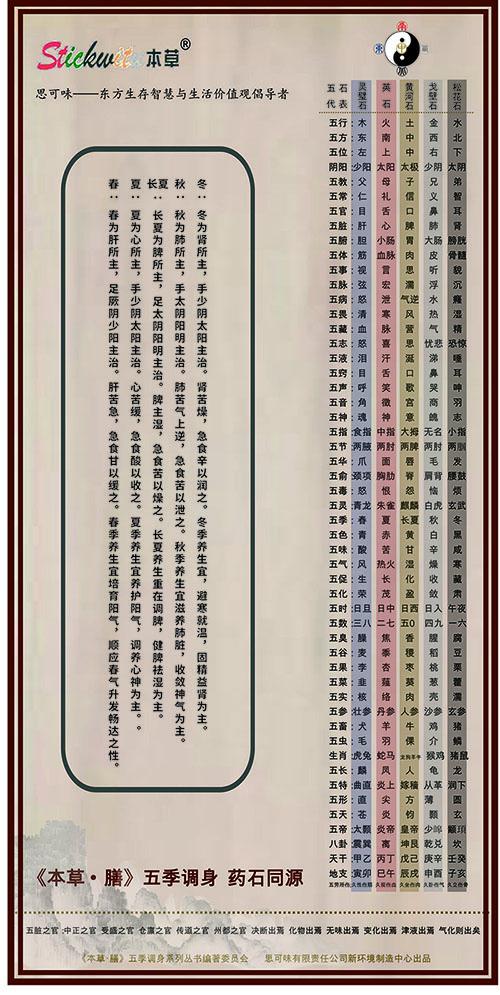 Stickwit 本草®
思可味——东方生存智慧与生活价值观倡导者
冬：冬为肾所主，手少阴太阳主治。肾苦燥，急食辛以润之。冬季养生宜，避寒就温，固精益肾为主。
秋：秋为肺所主，手太阴阳明主治。肺苦气上逆，急食苦以泄之。秋季养生宜滋养肺脏，收敛神气为主。
长夏：长夏为脾所主，足太阴阳明主治。脾主湿，急食苦以燥之。长夏养生重在调脾，健脾祛湿为主。
夏：夏为心所主，手少阴太阳主治。心苦缓，急食酸以收之。夏季养生宜养护阳气，调养心神为主。
春：春为肝所主，足厥阴少阳主治。肝苦急，急食甘以缓之。春季养生宜培育阳气，顺应春气升发畅达之性。
五石代表 灵璧石 英石 黄河石 戈壁石 松花石
五行：木 火 土 金 水
五方：东 南 中 西 北
五位：左 上 中 右 下
阴阳：少阳 太阳 太极 少阴 太阴
五教：父 母 子 兄 弟
五常：仁 礼 信 义 智
五官：目 舌 口 鼻 耳
五脏：肝 心 脾 肺 肾
五腑：胆 小肠 胃 大肠 膀胱
五体：筋 血脉 肉 皮 骨髓
五事：视 言 思 听 貌
五脉：弦 宏 濡 浮 沉
五病：怒 泄 气逆 水 癃
五畏：清 寒 风 热 湿
五藏：血 脉 营 气 精
五志：怒 喜 思 忧悲 恐惊
五液：泪 汗 涎 涕 唾
五窍：目 舌 口 鼻 耳
五声：呼 笑 歌 哭 呻
五音：角 徵 宫 商 羽
五神：魂 神 意 魄 志
五指：食指 中指 大拇 无名 小指
五节：两腋 两肘 两脾 两肘 两腘
五华：爪 面 唇 毛 发
五俞：颈项 胸肋 脊 肩背 腰鼓
五毒：怒 恨 怨 恼 烦
五灵：青龙 朱雀 麒麟 白虎 玄武
五季：春 夏 长夏 秋 冬
五色：青 赤 黄 白 黑
五味：酸 苦 甘 辛 咸
五气：风 热火 湿 燥 寒
五促：生 长 化 收 藏
五化：荣 茂 盈 敛 肃
五时：日旦 日中 日西 日入 午夜
五数：三八 二七 五0 四九 一六
五臭：臊 焦 香 腥 腐
五谷：麦 黍 稷 稻 豆
五果：李 杏 枣 桃 栗
五菜：韭 薤 葵 葱 藿
五实：核 络 肉 壳 濡
五参：牡参 丹参 人参 沙参 玄参
五畜：犬 羊 牛 鸡 猪
五虫：毛 羽 倮 介 鳞
生肖：虎兔 蛇马 龙狗羊牛 猴鸡 猪鼠
五长：麟 凤 人 龟 龙
五特：曲直 炎上 嫁穑 从革 润下
五形：直 尖 方 薄 圆
五天：苍 炎 钧 颢 玄
五帝：太颢 炎帝 皇帝 少皞 颛顼
八卦：震巽 离 坤艮 乾兑 坎
天干：甲乙 丙丁 戊己 庚辛 壬癸
地支：寅卯 巳午 辰戌 申酉 子亥
五劳所伤：久视伤血 久坐伤肉 久卧伤气 久立伤骨
《本草·膳》五季调身 药石同源
五脏之官：中正之官 受盛之官 仓廪之官 传道之官 州都之官 决断出焉 化物出焉 无味出焉 变化出焉 津液出焉 气化则出矣
《本草·膳》五季调身系列丛书编著委员会 思可味有限责任公司新环境制造中心出品